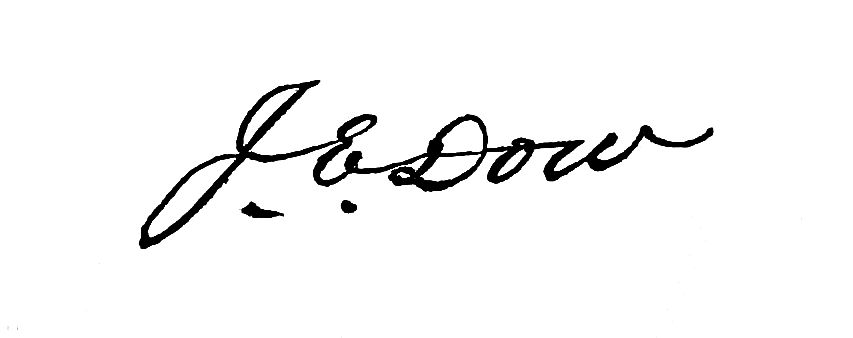 J. E. Dow